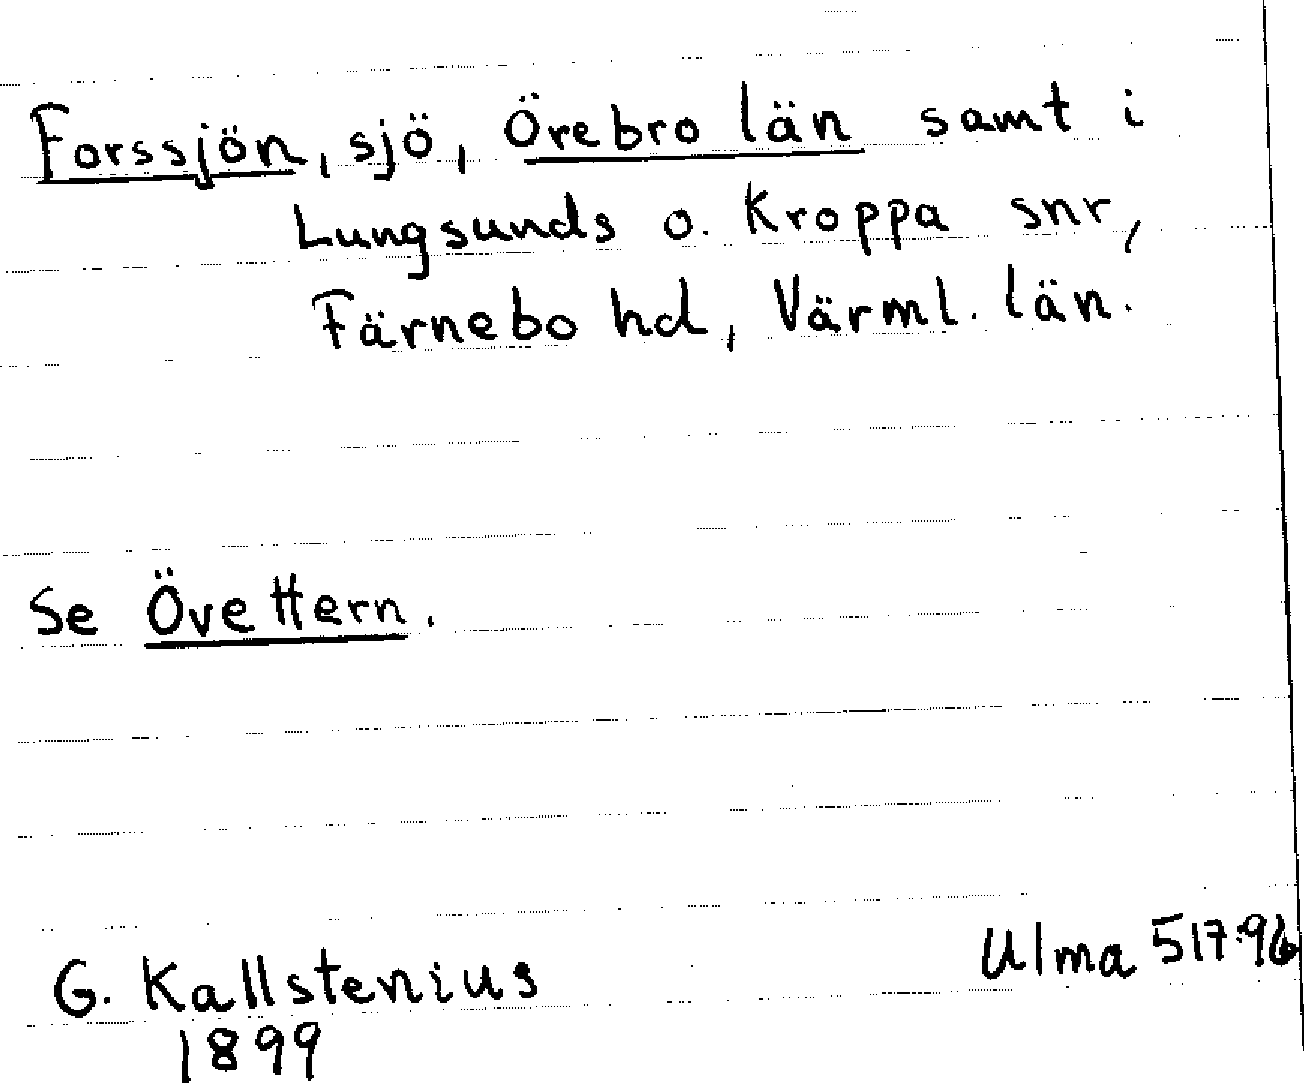 Forssjön, sjö, Örebro län samt i
Lungsunds o. Kroppa snr,
Färnebo hd, Värml. län.
Se Övettern.
G. Kallstenius
1899
Ulma 517:96